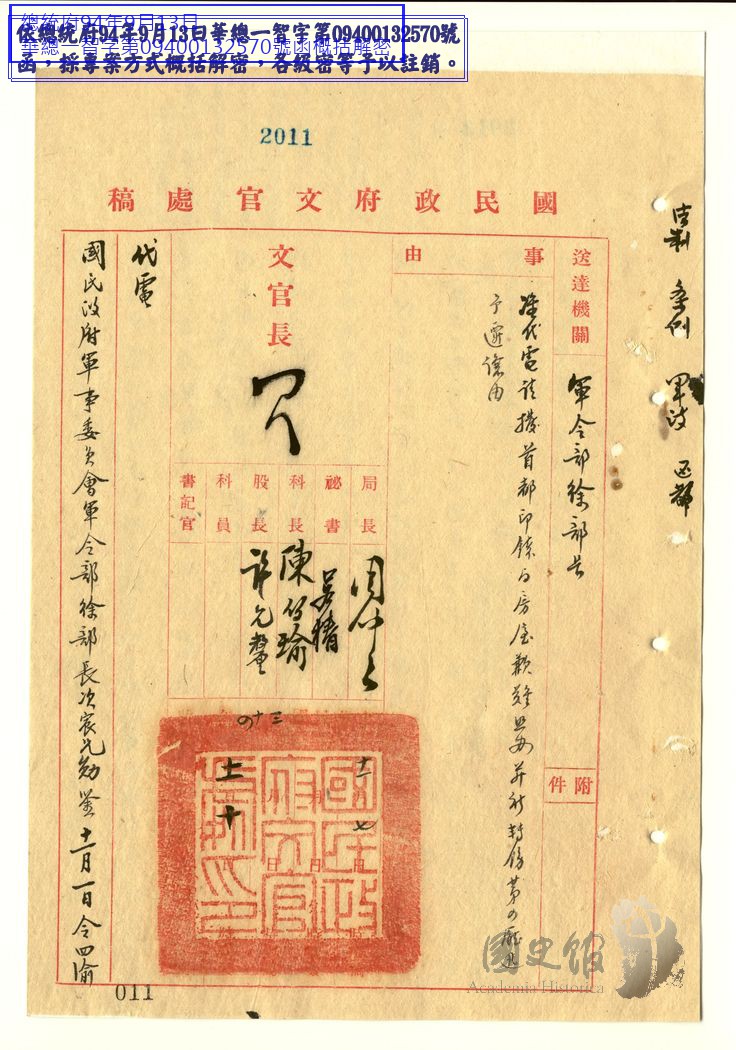 總統府94年9月13日
華總一智字第09400132570號函概括解密
依總統府94年9月13日華總一智字第09400132570號
函，採專案方式概括解密，各級密等予以註銷。
2011
國民政府文官處稿
法制 條例 軍政 函都
送達機關
軍令部徐部長
附件
事由
准代電請撥首都印鑄局房屋歉難照辦並祈轉飭第四廳迅
予遷讓由
文官長
局長
祕書
科長
股長
科員
書記官
陳
許
三十四
十一 七
月 日
十
國民政府文官處印
代電
國民政府軍事委員會軍令部徐部長次宸兄勛鑒十一月一日令四渝
011
國史館
Academia Historica